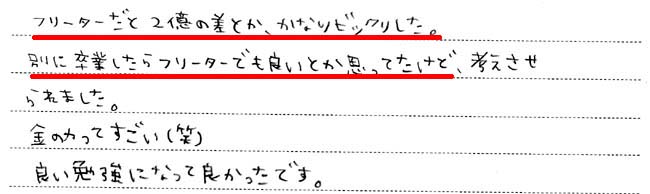 フリーターだと2億の差とか、かなりビックリした。
別に卒業したらフリーターでも良いとか思ってたけど、考えさせ
られました。
金の力ってすごい(笑)
良い勉強になって良かったです。